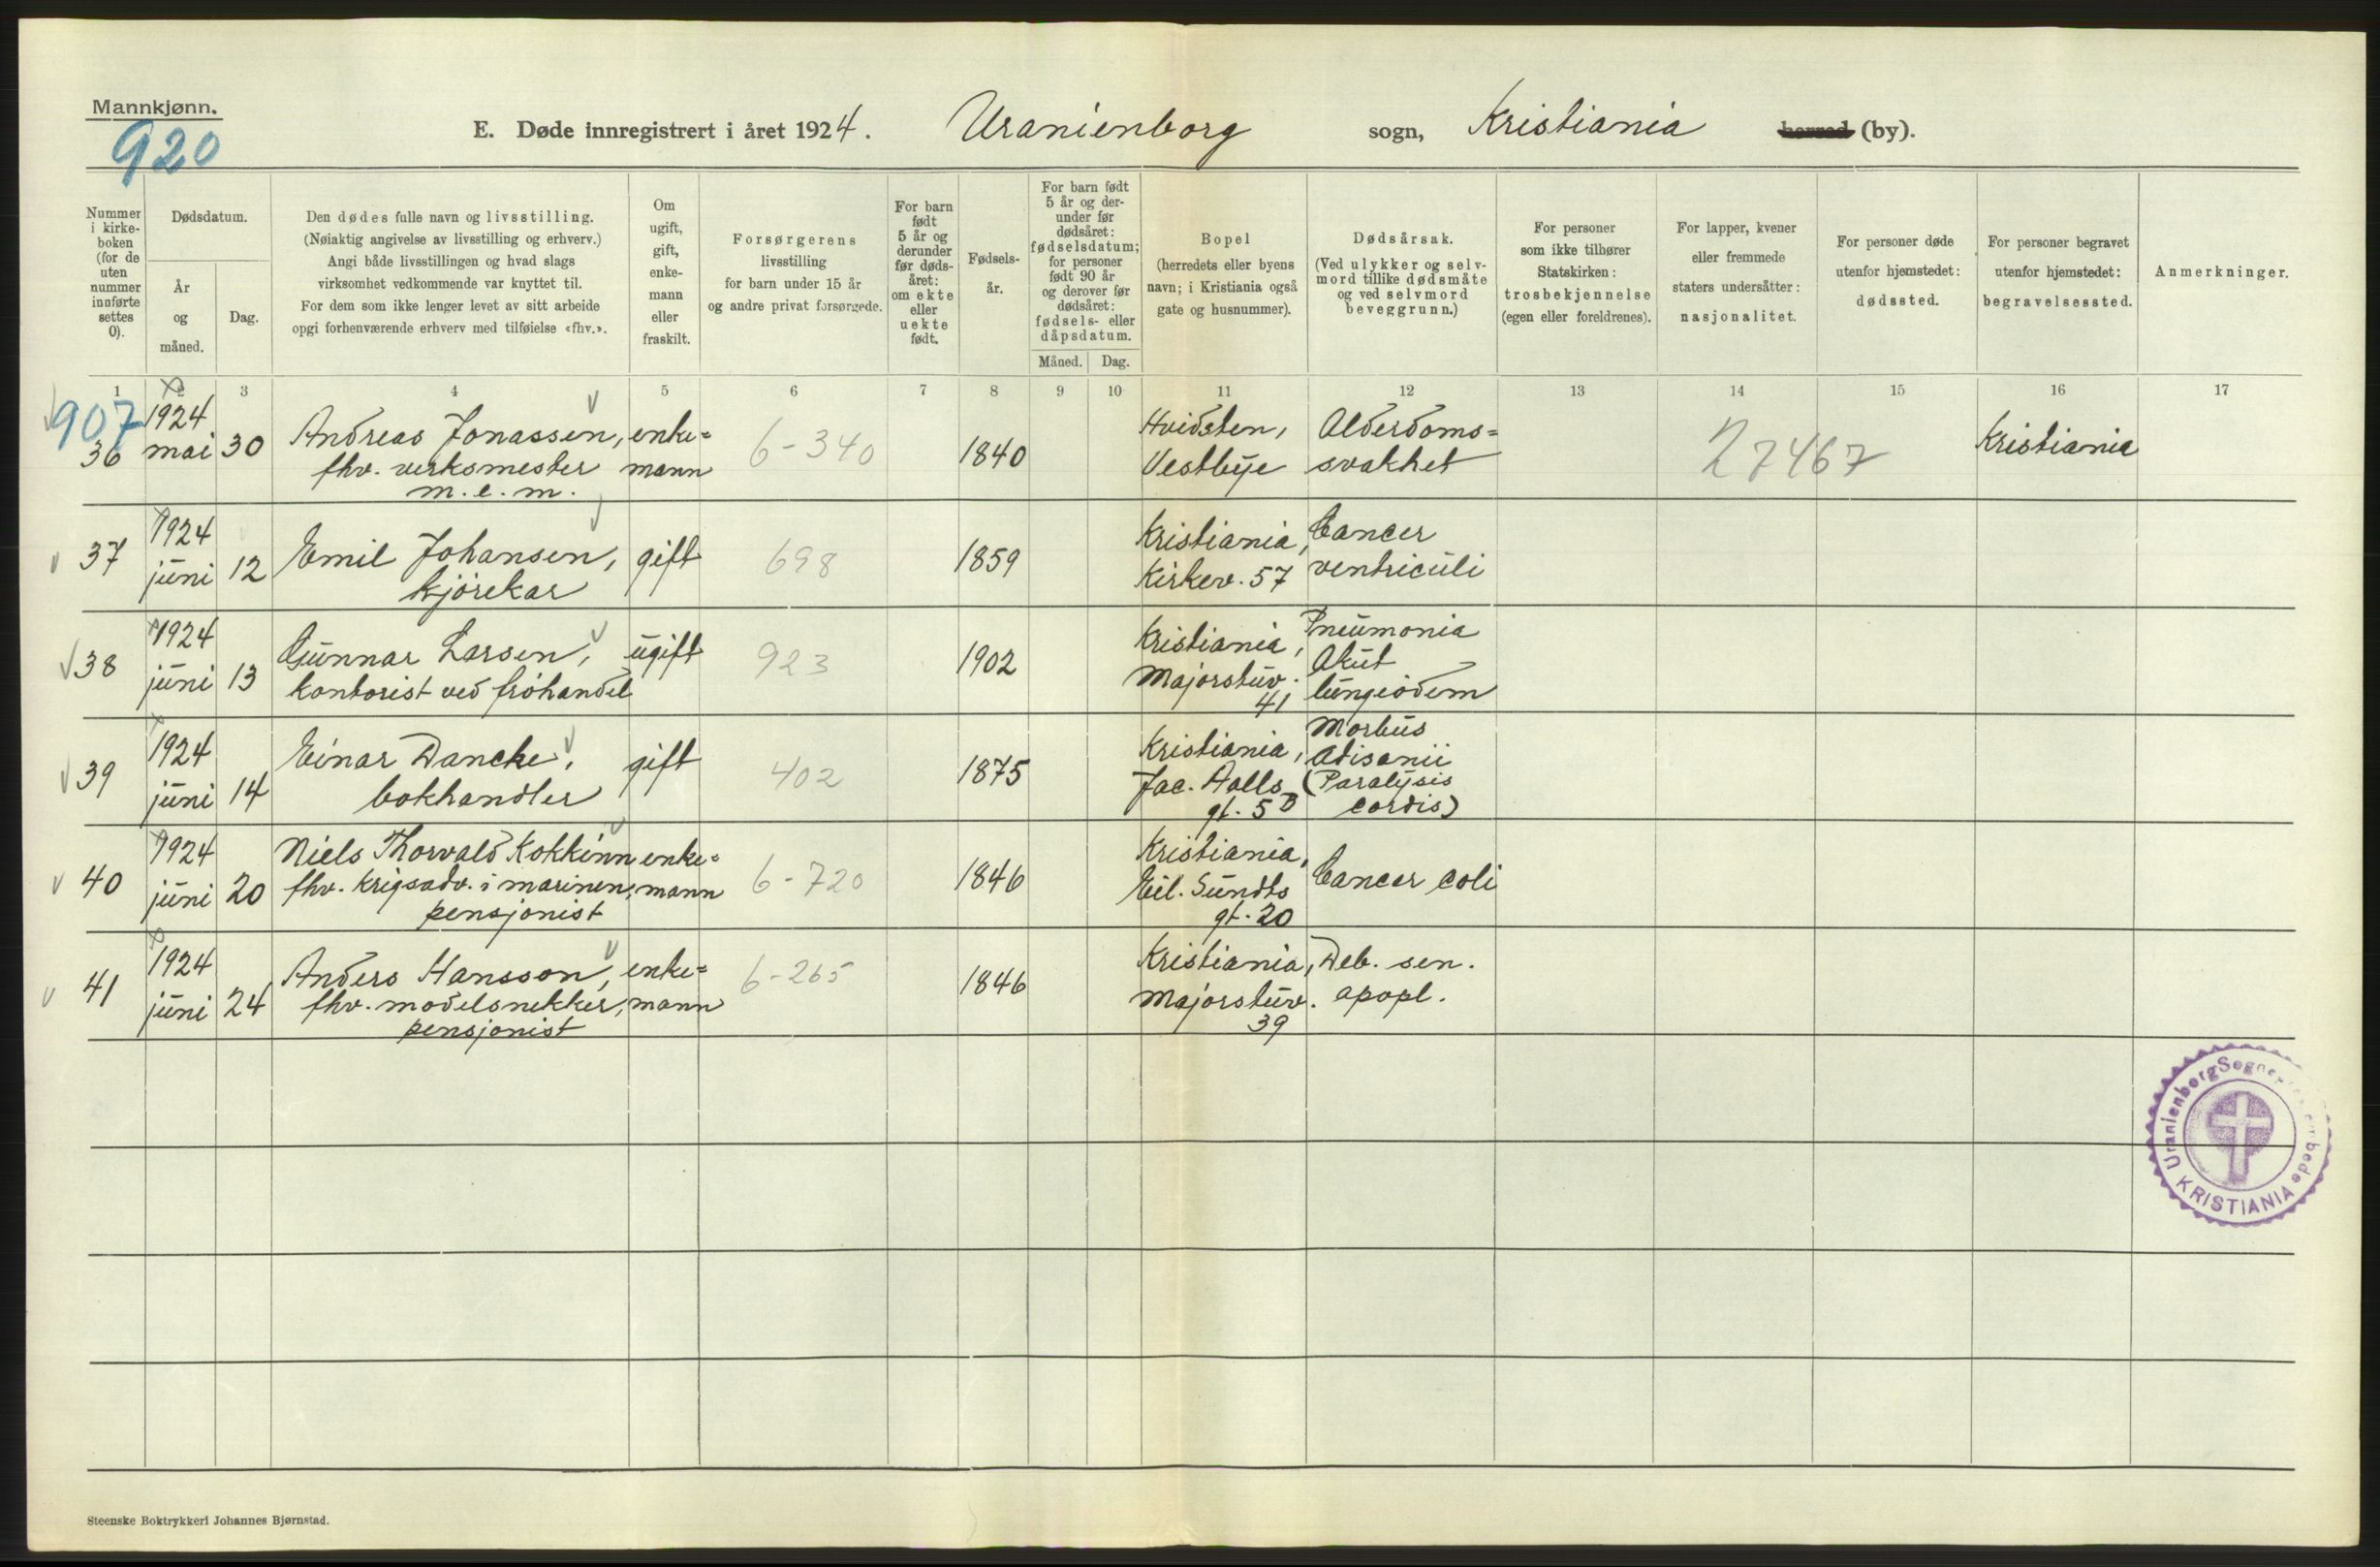 Mannkjønn.
920
E. Døde innregistrert i året 1924. Uranienborg sogn, Kristiania herred (by).
Nummer i kirkeboken (for de uten nummer innførte settes 0).
Dødsdatum.
År og måned.
Dag.
Den dødes fulle navn og livsstilling.
(Nøiaktig angivelse av livsstilling og erhverv.)
Angi både livsstillingen og hvad slags
virksomhet vedkommende var knyttet til.
For dem som ikke lenger levet av sitt arbeide
opgi forhenværende erhverv med tilføielse «fhv.».
Om ugift, gift, enkemann eller fraskilt.
Forsørgerens
livsstilling
for barn under 15 år
og andre privat forsørgede.
For barn født 5 år og derunder før dødsåret: om ekte eller uekte født.
Fødselsår.
For barn født 5 år og derunder før dødsåret: fødselsdatum; for personer født 90 år og derover før dødsåret: fødsels- eller dåpsdatum.
Måned.
Dag.
Bopel
(herredets eller byens
navn; i Kristiania også
gate og husnummer).
Dødsårsak.
(Ved ulykker og selvmord tillike dødsmåte og ved selvmord beveggrunn.)
For personer
som ikke tilhører
Statskirken:
trosbekjennelse
(egen eller foreldrenes).
For lapper, kvener
eller fremmede
staters undersåtter:
nasjonalitet.
For personer døde
utenfor hjemstedet:
dødssted.
For personer begravet
utenfor hjemstedet:
begravelsessted.
Anmerkninger.
1 2 3 4 5 6 7 8 9 10 11 12 13 14 15 16 17
907
36 1924 mai 30 Andreas Jonassen, enke=
fhv. verksmester mann
m. e. m.
6-340 1840 Hvidsten,
Vestbye
Alderdoms=
svakhet
27467 Kristiania
37 1924 juni 12 Emil Johansen, gift
kjørekar
698 1859 Kristiania,
Kirkev. 57
Cancer
ventriculi
38 1924 juni 13 Gunnar Larsen, ugift
kontorist ved frøhandel
923 1902 Kristiania,
Majorstuv.
41
Pneumonia
Akut
lungeødem
39 1924 juni 14 Einar Dancke, gift
bokhandler
402 1875 Kristiania,
Jac. Aalls
gt. 5 B
Morbus
Adisonii
(Paralysis
cordis)
40 1924 juni 20 Niels Thorvald Kokkinn enke=
fhv. krigsadv. i marinen, mann
pensjonist
6-720 1846 Kristiania,
Eil. Sundts
gt. 20
Cancer coli
41 1924 juni 24 Anders Hansson, enke=
fhv. modelsnekker, mann
pensjonist
6-265 1846 Kristiania,
Majorstuv.
39
Deb. sen.
apopl.
Uranienborg
KRISTIANIA
Steenske Boktrykkeri Johannes Bjørnstad.